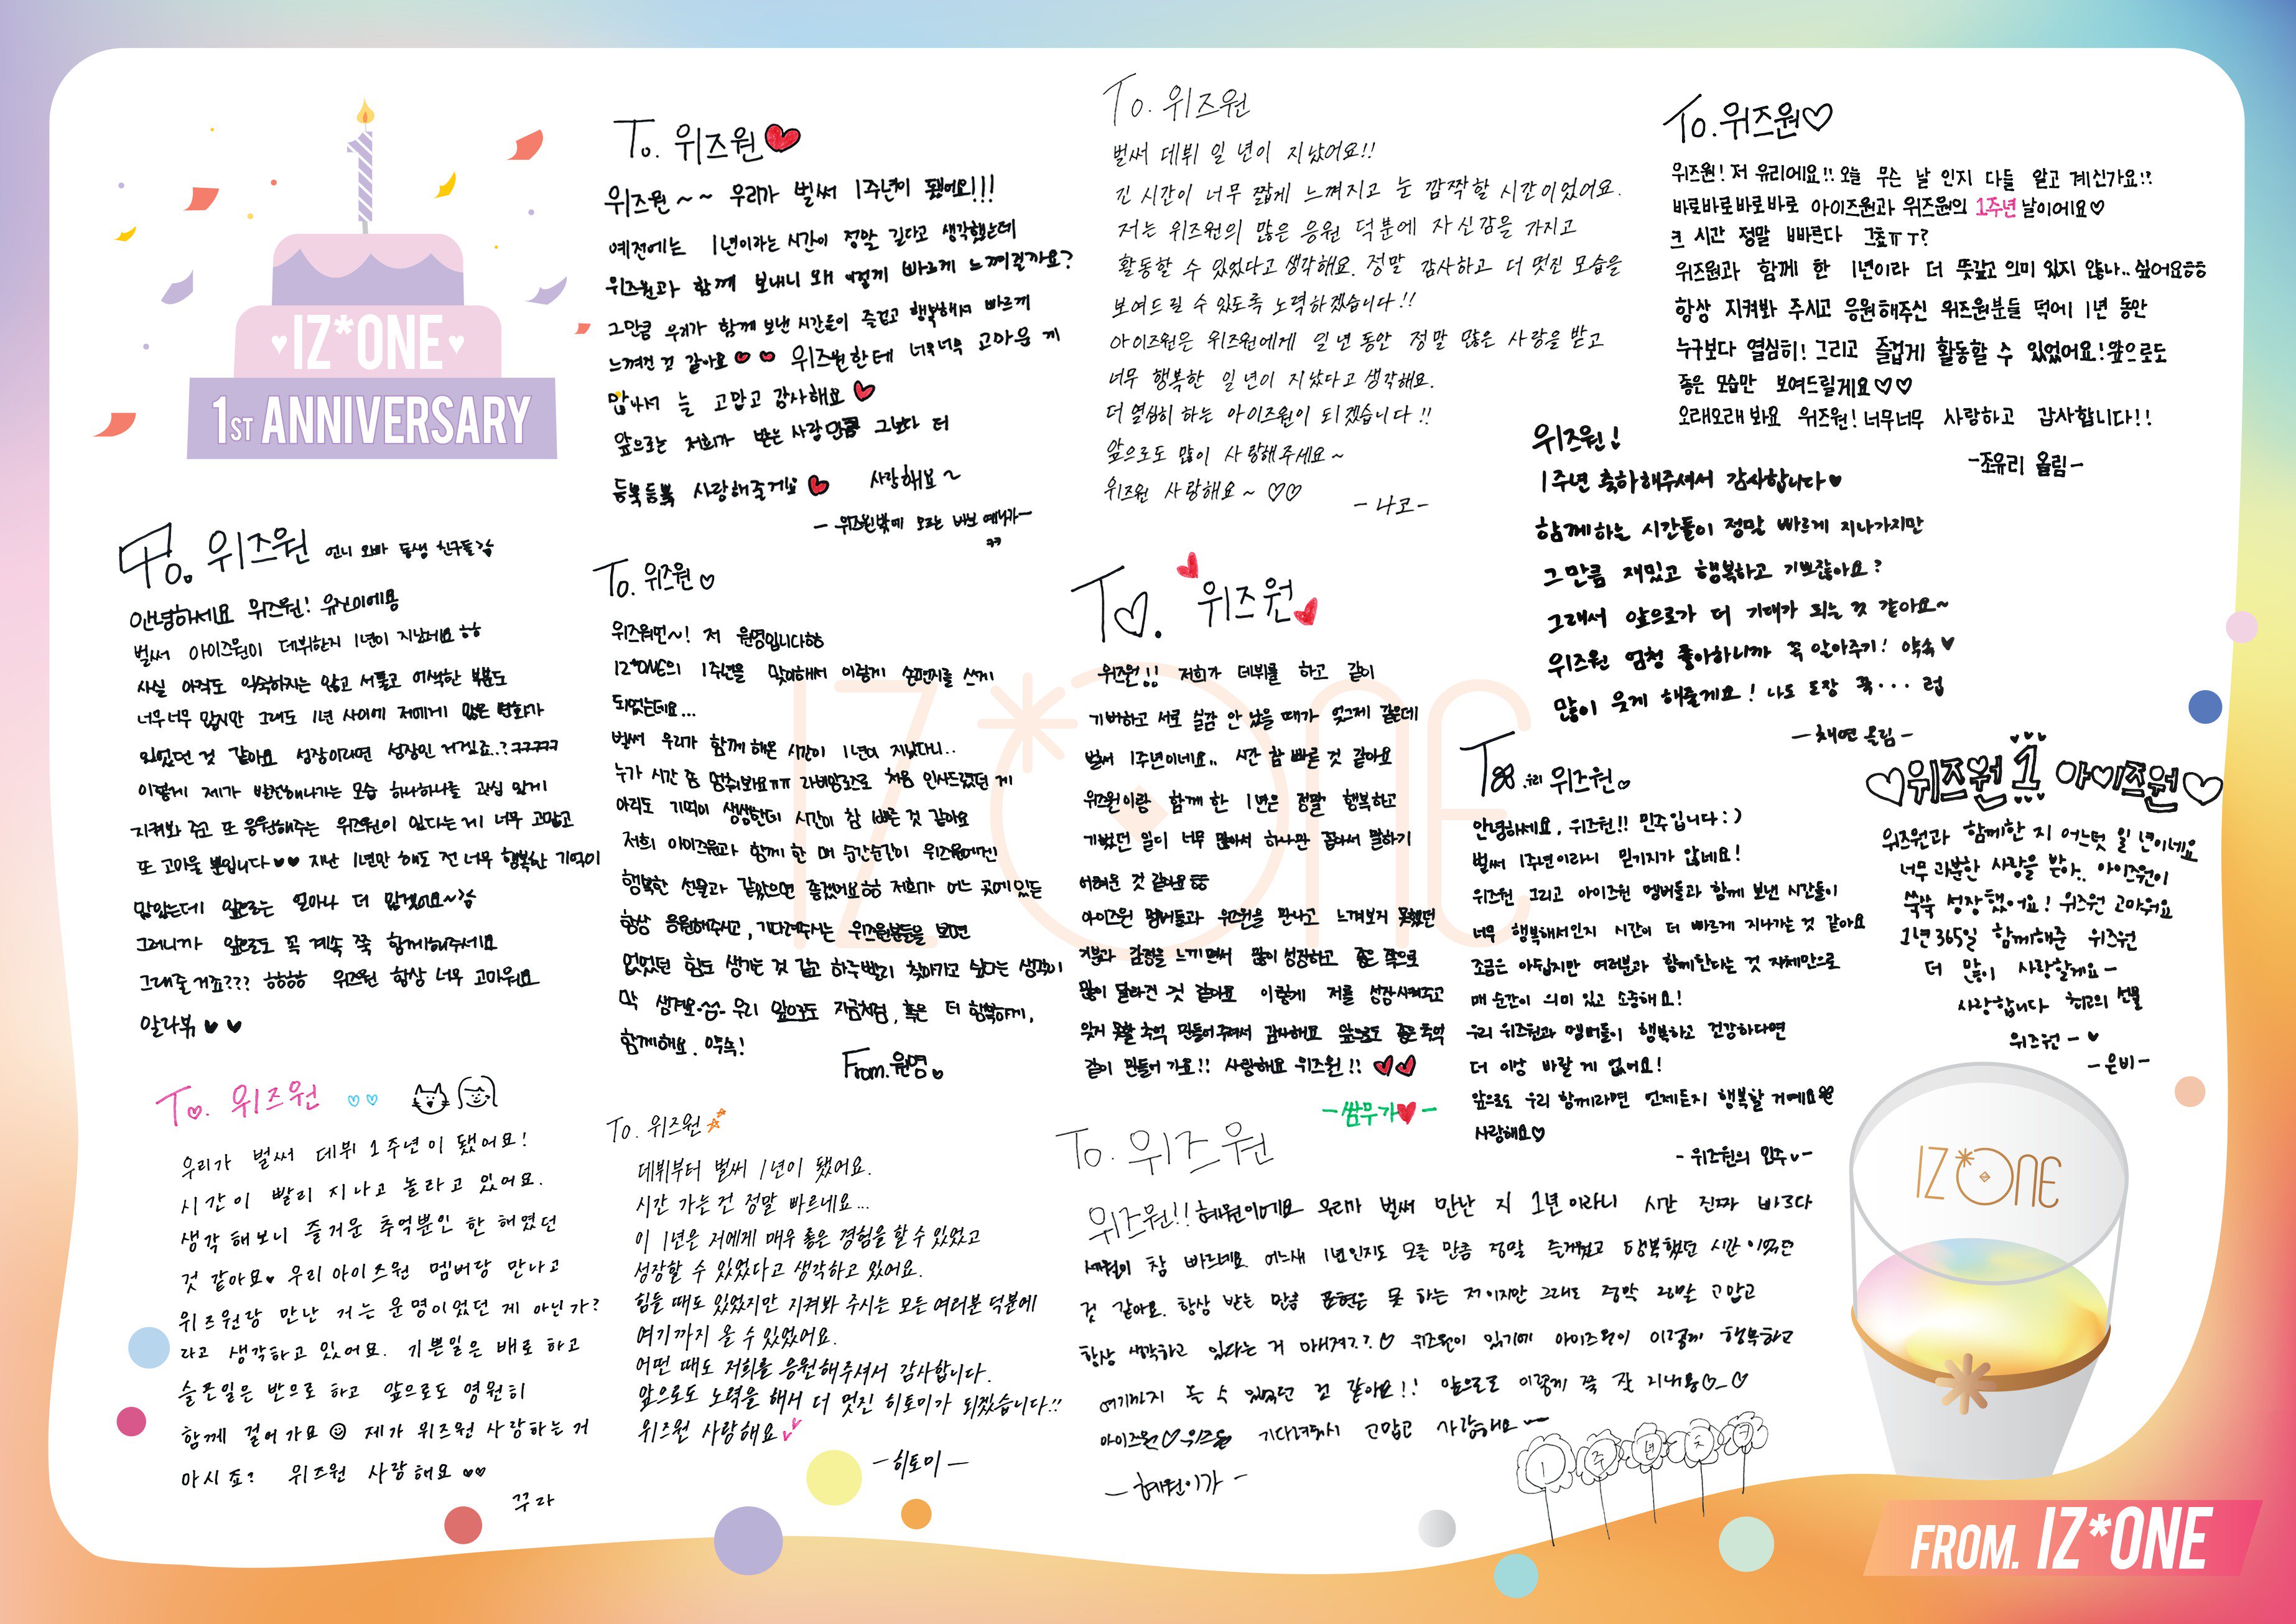 IZ*ONE
1ST ANNIVERSARY
To. 위즈원
위즈원~~ 우리가 벌써 1주년이 됐어요!!!
예전에는 1년이라는 시간이 정말 길다고 생각했는데
위즈원과 함께 보내니 왜 이렇게 빠르게 느껴질까요?
그만큼 우리가 함께 보낸 시간들이 즐겁고 행복해서 빠르게
느껴진 것 같아요 위즈원한테 너무너무 고마운 게
많아서 늘 고맙고 감사해요
앞으로는 저희가 받는 사랑만큼 그보다 더
듬뿍듬뿍 사랑해줄게요 사랑해요~
- 위즈원밖에 모르는 바보 예나가-
ㅋㅋ
To. 위즈원
벌써 데뷔 일 년이 지났어요!!
긴 시간이 너무 짧게 느껴지고 눈 깜짝할 시간이었어요.
저는 위즈원의 많은 응원 덕분에 자신감을 가지고
활동할 수 있었다고 생각해요. 정말 감사하고 더 멋진 모습을
보여드릴 수 있도록 노력하겠습니다!!
아이즈원은 위즈원에게 일 년 동안 정말 많은 사랑을 받고
너무 행복한 일 년이 지났다고 생각해요.
더 열심히 하는 아이즈원이 되겠습니다!!
앞으로도 많이 사랑해주세요~
위즈원 사랑해요~ ♡♡
- 나코-
To. 위즈원♡
위즈원! 저 유리에요!! 오늘 무슨 날 인지 다들 알고 계신가요!?
바로바로바로바로 아이즈원과 위즈원의 1주년 날이에요♡
크 시간 정말 빠른다 그쵸ㅠㅜ?
위즈원과 함께 한 1년이라 더 뜻깊고 의미 있지 않나.. 싶어요ㅎㅎ
항상 지켜봐 주시고 응원해주신 위즈원분들 덕에 1년 동안
누구보다 열심히! 그리고 즐겁게 활동할 수 있었어요! 앞으로도
좋은 모습만 보여드릴게요♡♡
오래오래 봐요 위즈원! 너무너무 사랑하고 감사합니다!!
-조유리 올림-
위즈원!
1주년 축하해주셔서 감사합니다♥
함께하는 시간들이 정말 빠르게 지나가지만
그만큼 재밌고 행복하고 기쁘잖아요?
그래서 앞으로가 더 기대가 되는 것 같아요~
위즈원 엄청 좋아하니까 꼭 알아주기! 약속♥
많이 웃게 해줄게요! 나도 도장 쪽... 럽
-채연 올림-
To. 위즈원 언니 오빠 동생 친구들
안녕하세요 위즈원! 유진이에용
벌써 아이즈원이 데뷔한지 1년이 지났네요ㅎㅎ
사실 아직도 익숙하지는 않고 서툴고 어색한 부분도
너무너무 많지만 그래도 1년 사이에 저에게 많은 변화가
있었던 것 같아요 성장이라면 성장인 거겠죠..? ㅋㅋㅋㅋㅋ
이렇게 제가 발전해나가는 모습 하나하나를 관심 있게
지켜봐 주고 또 응원해주는 위즈원이 있다는게 너무 고맙고
또 고마울 뿐입니다♥♥ 지난 1년만 해도 전 너무 행복한 기억이
많았는데 앞으로는 얼마나 더 많겠어요~
그러니까 앞으로도 꼭 계속 쭉 함께해주세요
그래줄거죠??? ㅎㅎㅎㅎ 위즈원 항상 너무 고마워요
알라뷰 ♥ ♥
To. 위즈원♡
위즈원언~! 저 원영입니다ㅎㅎ
IZ*ONE의 1주년을 맞이해서 이렇게 손편지를 쓰게
되었는데요...
벌써 우리가 함께 해온 시간이 1년이 지났다니..
누가 시간 좀 멈춰봐요ㅠㅠ 라비앙로즈로 처음 인사드렸던 게
아직도 기억이 생생한데 시간이 참 빠른 것 같아요
저희 아이즈원과 함께 한 매 순간순간이 위즈원에겐
행복한 선물과 같았으면 좋겠어요ㅎㅎ 저희가 어느 곳에 있든
항상 응원해주시고, 기다려주시는 위즈원분들을 보면
없었던 힘도 생기는 것 같고 하루빨리 찾아가고 싶다는 생각이
막 생겨요 우리 앞으로도 지금처럼, 혹은 더 행복하게,
함께해요. 약속!
From. 원영
To. 위즈원
위즈원!! 저희가 데뷔를 하고 같이
기뻐하고 서로 실감 안 났을 때가 엊그제 같은데
벌써 1주년이네요.. 시간 참 빠른 것 같아요
위즈원이랑 함께 한 1년은 정말 행복하고
기뻤던 일이 너무 많아서 하나만 꼽아서 말하기
어려운 것 같아요ㅎㅎ
아이즈원 멤버들과 위즈원을 만나고 느껴보지 못했던
기분과 감정을 느끼면서 많이 성장하고 좋은 쪽으로
많이 달라진 것 같아요 이렇게 저를 성장시켜주고
잊지 못할 추억 만들어 주셔서 감사해요 앞으로도 좋은 추억
같이 만들어 가요!! 사랑해요 위즈원!!
-쌈무가-
To. 우리 위즈원
안녕하세요, 위즈원!! 민주입니다:)
벌써 1주년이라니 믿기지가 않네요!
위즈원 그리고 아이즈원 멤버들과 함께 보낸 시간들이
너무 행복해서인지 시간이 더 빠르게 지나가는 것 같아요
조금은 아쉽지만 여러분과 함께한다는 것 자체만으로
매 순간이 의미 있고 소중해요!
우리 위즈원과 멤버들이 행복하고 건강하다면
더 이상 바랄 게 없어요!
앞으로도 우리 함께라면 언제든지 행복할 거예요
사랑해요♡
- 위즈원의 민주-
♡위즈원 1 아이즈원♡
위즈원과 함께한 지 어느덧 일 년이네요
너무 과분한 사랑을 받아.. 아이즈원이
쑥쑥 성장했어요! 위즈원 고마워요
1년 365일 함께해준 위즈원
더 많이 사랑할게요-
사랑합니다 최고의 선물
위즈원- ♥
-은비-
To. 위즈원
우리가 벌써 데뷔 1주년이 됐어요!
시간이 빨리 지나고 놀라고 있어요.
생각해보니 즐거운 추억뿐인 한 해였던
것 같아요♥ 우리 아이즈원 멤버랑 만나고
위즈원랑 만난 거는 운명이었던 게 아닌가?
라고 생각하고 있어요. 기쁜일은 배로 하고
슬픈일은 반으로 하고 앞으로도 영원히
함께 걸어가요 제가 위즈원 사랑하는 거
아시죠? 위즈원 사랑해요 ♥♥
꾸라
To. 위즈원
데뷔부터 벌써 1년이 됐어요.
시간 가는 건 정말 빠르네요...
이 1년은 저에게 매우 좋은 경험을 할 수 있었고
성장할 수 있었다고 생각하고 있어요.
힘들 때도 있었지만 지켜봐 주시는 모든 여러분 덕분에
여기까지 올 수 있었어요.
어떤 때도 저희를 응원해주셔서 감사합니다.
앞으로도 노력을 해서 더 멋진 히토미가 되겠습니다!!
위즈원 사랑해요
-히토미-
To. 위즈원
위즈원!! 혜원이에요 우리가 벌써 만난 지 1년이라니 시간 진짜 빠르다
세월이 참 빠르네요. 어느새 1년인지도 모를 만큼 정말 즐거웠고 행복했던 시간이었던
것 같아요. 항상 받는 만큼 표현은 못 하는 저이지만 그래도 정말 고맙고
항상 생각하고 있다는 거 아셔?? ♡ 위즈원이 있기에 아이즈원이 이렇게 행복하고
여기까지 올 수 있었던 것 같아요!! 앞으로도 이렇게 쭉 잘 지내용♡_♡
아이즈원♡위즈원 기다려줘서 고맙고 사랑해요~
- 혜원이가 -
1주년
IZ*ONE
IZ*ONE
FROM. IZ*ONE